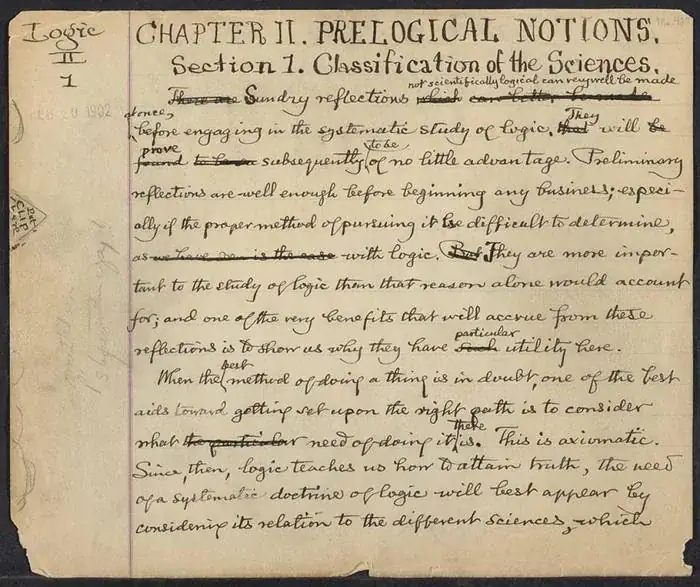 Logic
II
1
CHAPTER II. PRELOGICAL NOTIONS.
Section 1. Classification of the Sciences.
not scientifically logical can very well be made
There are Sundry reflections which can better be made
FEB 20 1902
at once,
They
before engaging in the systematic study of logic, that will be
prove
to be
found to be subsequently of no little advantage. Preliminary
reflections are well enough before beginning any business; especi-
ally if the proper method of pursuing it be difficult to determine,
as we have seen is the case with logic. But They are more impor-
tant to the study of logic than that reason alone would account
for; and one of the very benefits that will accrue from these
particular
reflections is to show us why they have such utility here.
best
When the method of doing a thing is in doubt one of the best
aids toward getting set upon the right path is to consider
there
what the particular need of doing it is. This is axiomatic.
Since, then, logic teaches us how to attain truth, the need
of a systematic doctrine of logic will best appear by
considering its relation to the different sciences, which